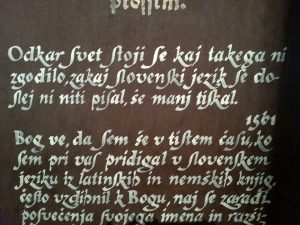 Odkar svet stoji se kaj takega ni
zgodilo, zakaj slovenski jezik se do-
slej ni niti pisal, še manj tiskal.
1561
Bog ve, da sem še v tistem času, ko
sem pri vas pridigal v slovenskem
jeziku iz latinskih in nemških knjig,
često vzdihnil k Bogu, naj se zaradi
posvečenja svojega imena in razši-